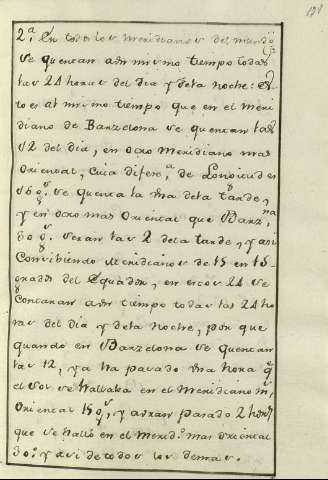 2.ª En todos los Meridianos del mundo
se quentan a un mismo tiempo todas
las 24 horas del dia y dela noche: es
to es al mismo tiempo que en el Meri
diano de Barzelona se quentan las
12 del dia, en otro Meridiano mas
Oriental, cuia difere.ª de Lonxitud es
15 g.s se quenta la una dela tarde,
y en otro mas Oriental que Barz.na
30 g.s seran las 2 dela tarde, y asi
Concibiendo Meridianos de 15 en 15
grados del Equador, en estos 24 se
Contaran a un tiempo todas las 24 ho
ras del dia y dela noche, por que
quando en Barzelona se quentan
las 12, ya ha pasado una hora q.e
el Sol se hallaba en el Meridiano
Oriental 15 g.s, y avran pasado 2 horas
que se halló en el Merid.º mas Oriental
30: y asi de todos los demas.